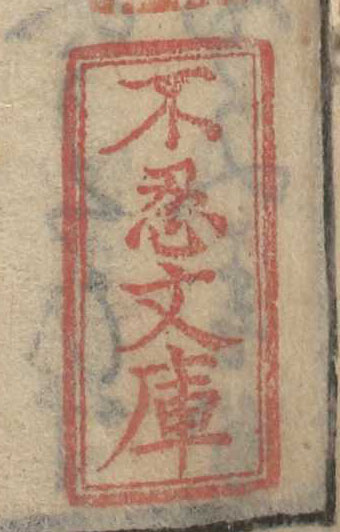 不忍文庫